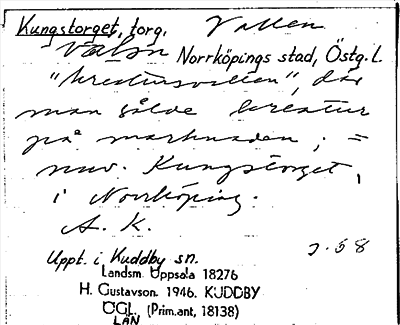 Kungstorget, torg. Vallen
Norrköpings stad, Östg. L.
"kreatursvallen", där
man sålde kreatur
på marknaden; =
nuv. Kungstorget,
i Norrköping.
A. K.
Uppt. i Kuddby sn. 7. 58
Landsm. Uppsala 18276
H. Gustavson. 1946. KUDDBY
ÖGL. (Prim.ant, 18138)
LÄN